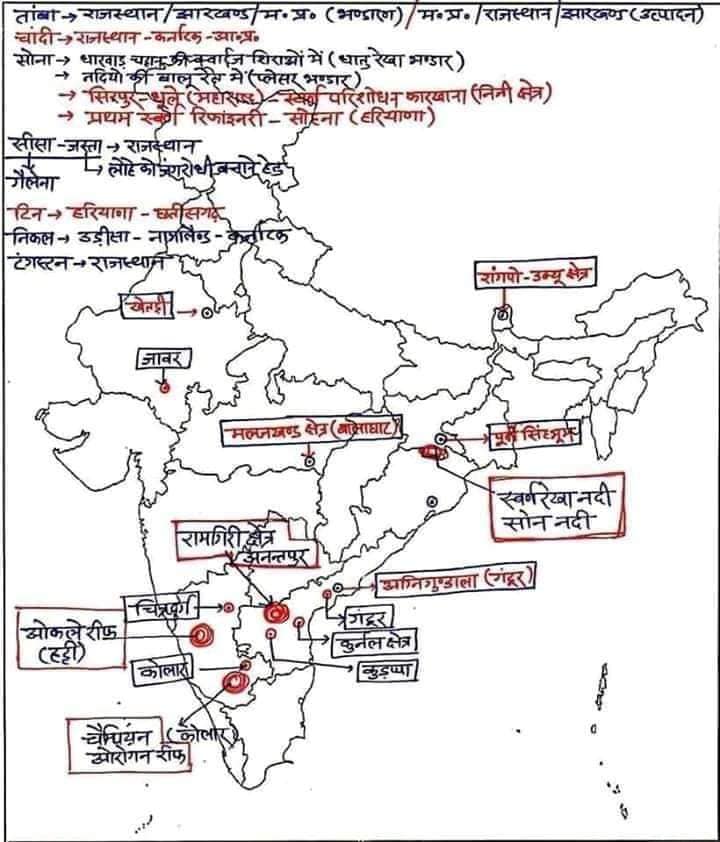 तांबा → राजस्थान/झारखण्ड/म.प्र. (भण्डारण)/म.प्र./राजस्थान/झारखण्ड (उत्पादन)
चांदी → राजस्थान - कर्नाटक - आ.प्र.
सोना → धारवाड़ चट्टान की क्वार्ट्ज शिराओं में (धातु रेखा भण्डार)
→ नदियों की बालू रेत में (प्लेसर भण्डार)
→ सिरपुर - धूले (महाराष्ट्र) - स्वर्ण परिशोधन कारखाना (निजी क्षेत्र)
→ प्रथम स्वर्ण रिफाइनरी - सोहना (हरियाणा)
सीसा - जस्ता → राजस्थान
→ लोहे को जंगरोधी बनाने हेतु
गैलेना
टिन → हरियाणा - छत्तीसगढ़
निकल → उड़ीसा - नागालैण्ड - कर्नाटक
टंगस्टन → राजस्थान
रांगपो-डम्यू क्षेत्र
खेतड़ी
जावर
मलजखण्ड क्षेत्र (बालाघाट)
पूर्वी सिंहभूम
स्वर्ण रेखा नदी
सोन नदी
रामगिरी क्षेत्र
अनन्तपुर
अग्निगुण्डाला (गंटूर)
चित्रदुर्ग
गंटूर
ओकले रीफ
(हट्टी)
कुर्नूल क्षेत्र
कोलार
कुड़प्पा
चैम्पियन (कोलार)
ओरोगन रीफ